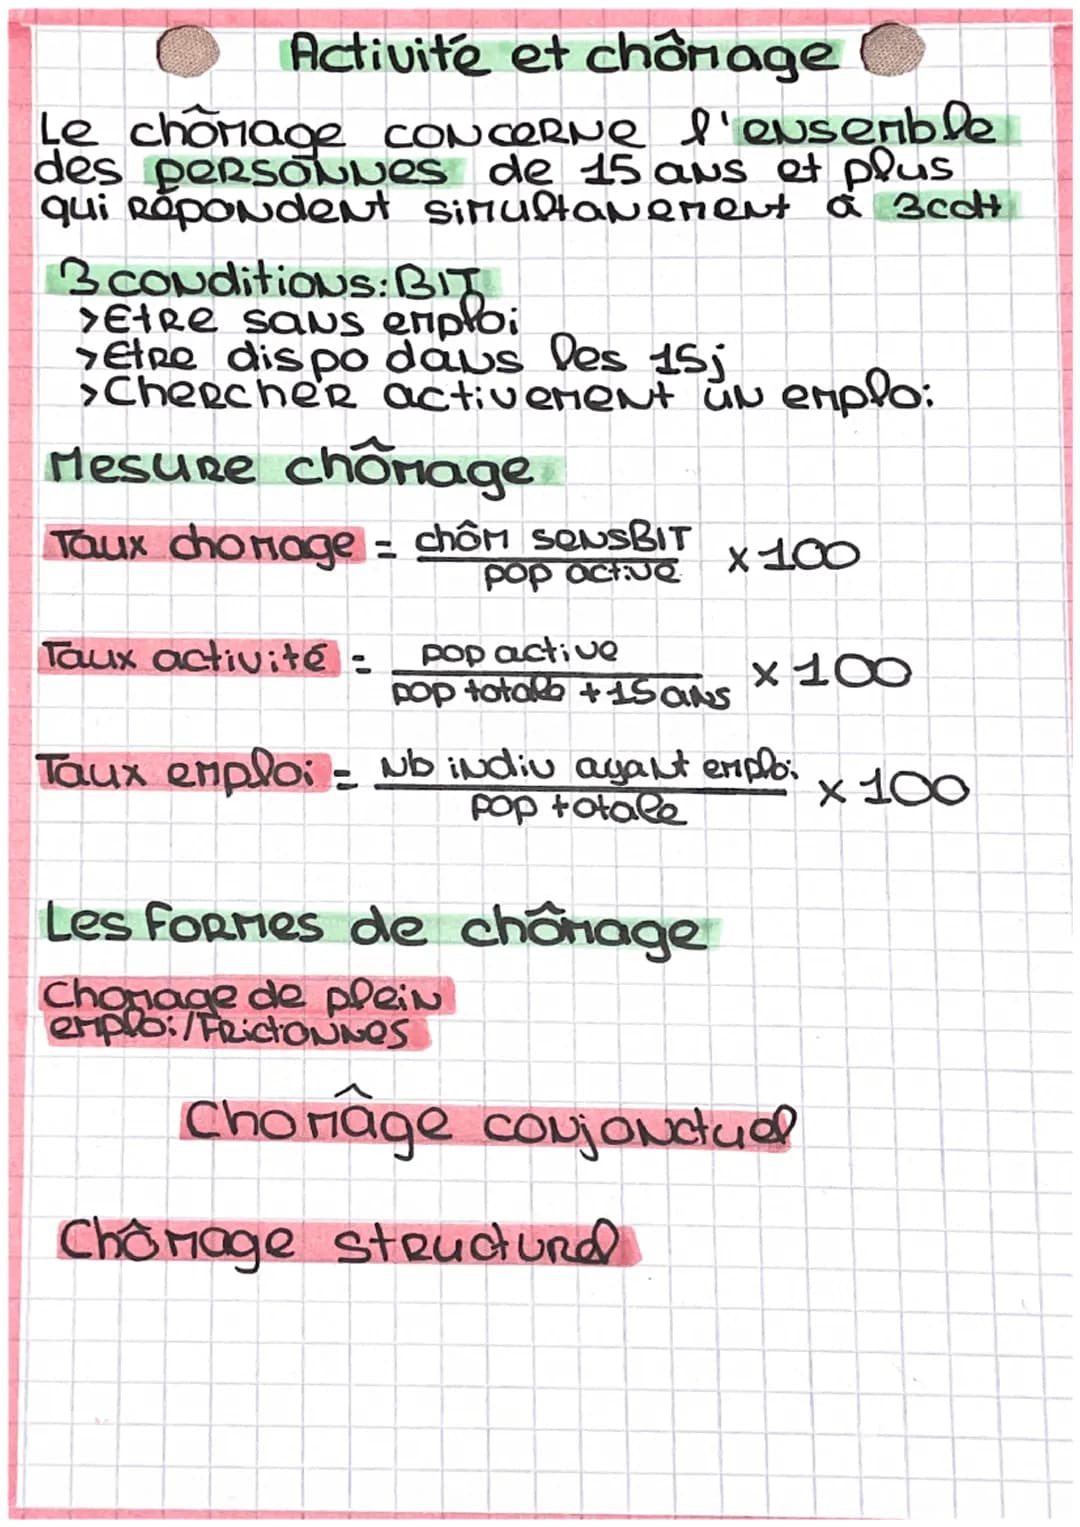 Activité et chômage
Le chômage concerne l'ensemble
des personnes de 15 ans et plus
qui répondent simultanement à 3cdt
3 conditions: BIT
>Etre sans emploi
>Etre dispo dans les 15j
>Chercher activement un emploi
Mesure chômage
Taux chomage = chôm sensBIT / pop active x 100
Taux activité = pop active / pop totale +15 ans x 100
Taux emploi = Nb indiv ayant emploi / pop totale x 100
Les formes de chômage
Chomage de plein
emploi/Frictonnes
Chomâge conjonctuel
Chômage structurel